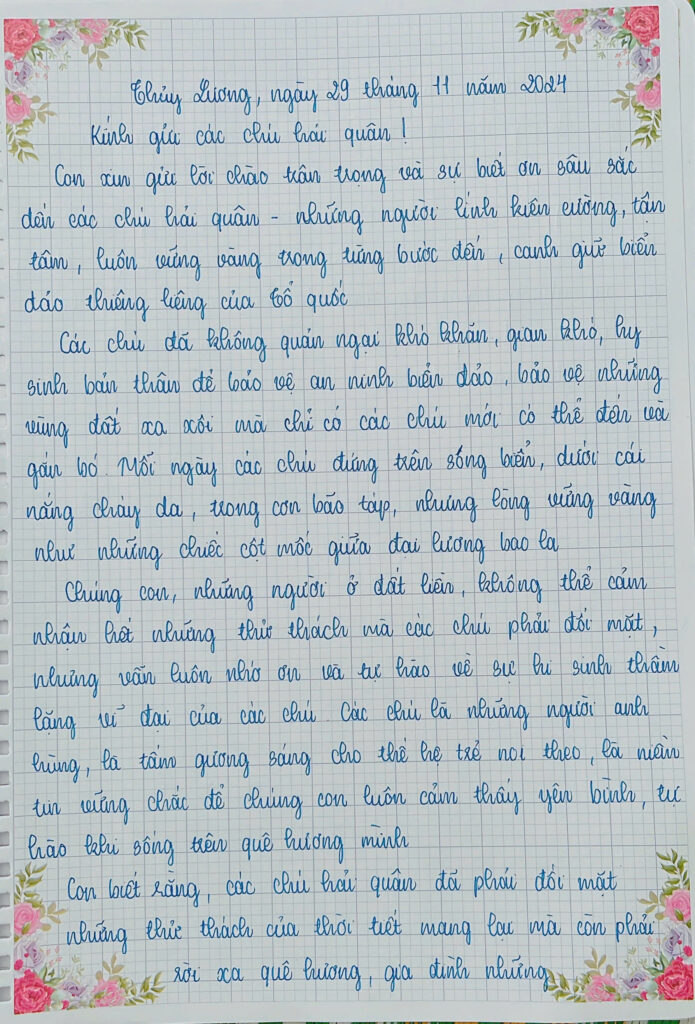 Thủy Lương, ngày 29 tháng 11 năm 2024
Kính gửi các chú hải quân !
Con xin gửi lời chào trân trọng và sự biết ơn sâu sắc
đến các chú hải quân - những người lính kiên cường, tận
tâm, luôn vững vàng trong từng bước đến, canh giữ biển
đảo thiêng liêng của tổ quốc
Các chú đã không quản ngại khó khăn, gian khó, hy
sinh bản thân để bảo vệ an ninh biển đảo, bảo vệ những
vùng đất xa xôi mà chỉ có các chú mới có thể đến và
gắn bó. Mỗi ngày các chú đứng trên sóng biển, dưới cái
nắng cháy da, trong cơn bão táp, nhưng lòng vững vàng
như những chiếc cột mốc giữa đại lương bao la
Chúng con, những người ở đất liền, không thể cảm
nhận hết những thử thách mà các chú phải đối mặt,
nhưng vẫn luôn nhớ ơn và tự hào về sự hi sinh thầm
lặng vĩ đại của các chú. Các chú là những người anh
hùng, là tấm gương sáng cho thế hệ trẻ noi theo, là niềm
tin vững chắc để chúng con luôn cảm thấy yên bình, tự
hào khi sống trên quê hương mình
Con biết rằng, các chú hải quân đã phải đối mặt
những thử thách của thời tiết mang lại mà còn phải
rời xa quê hương, gia đình những